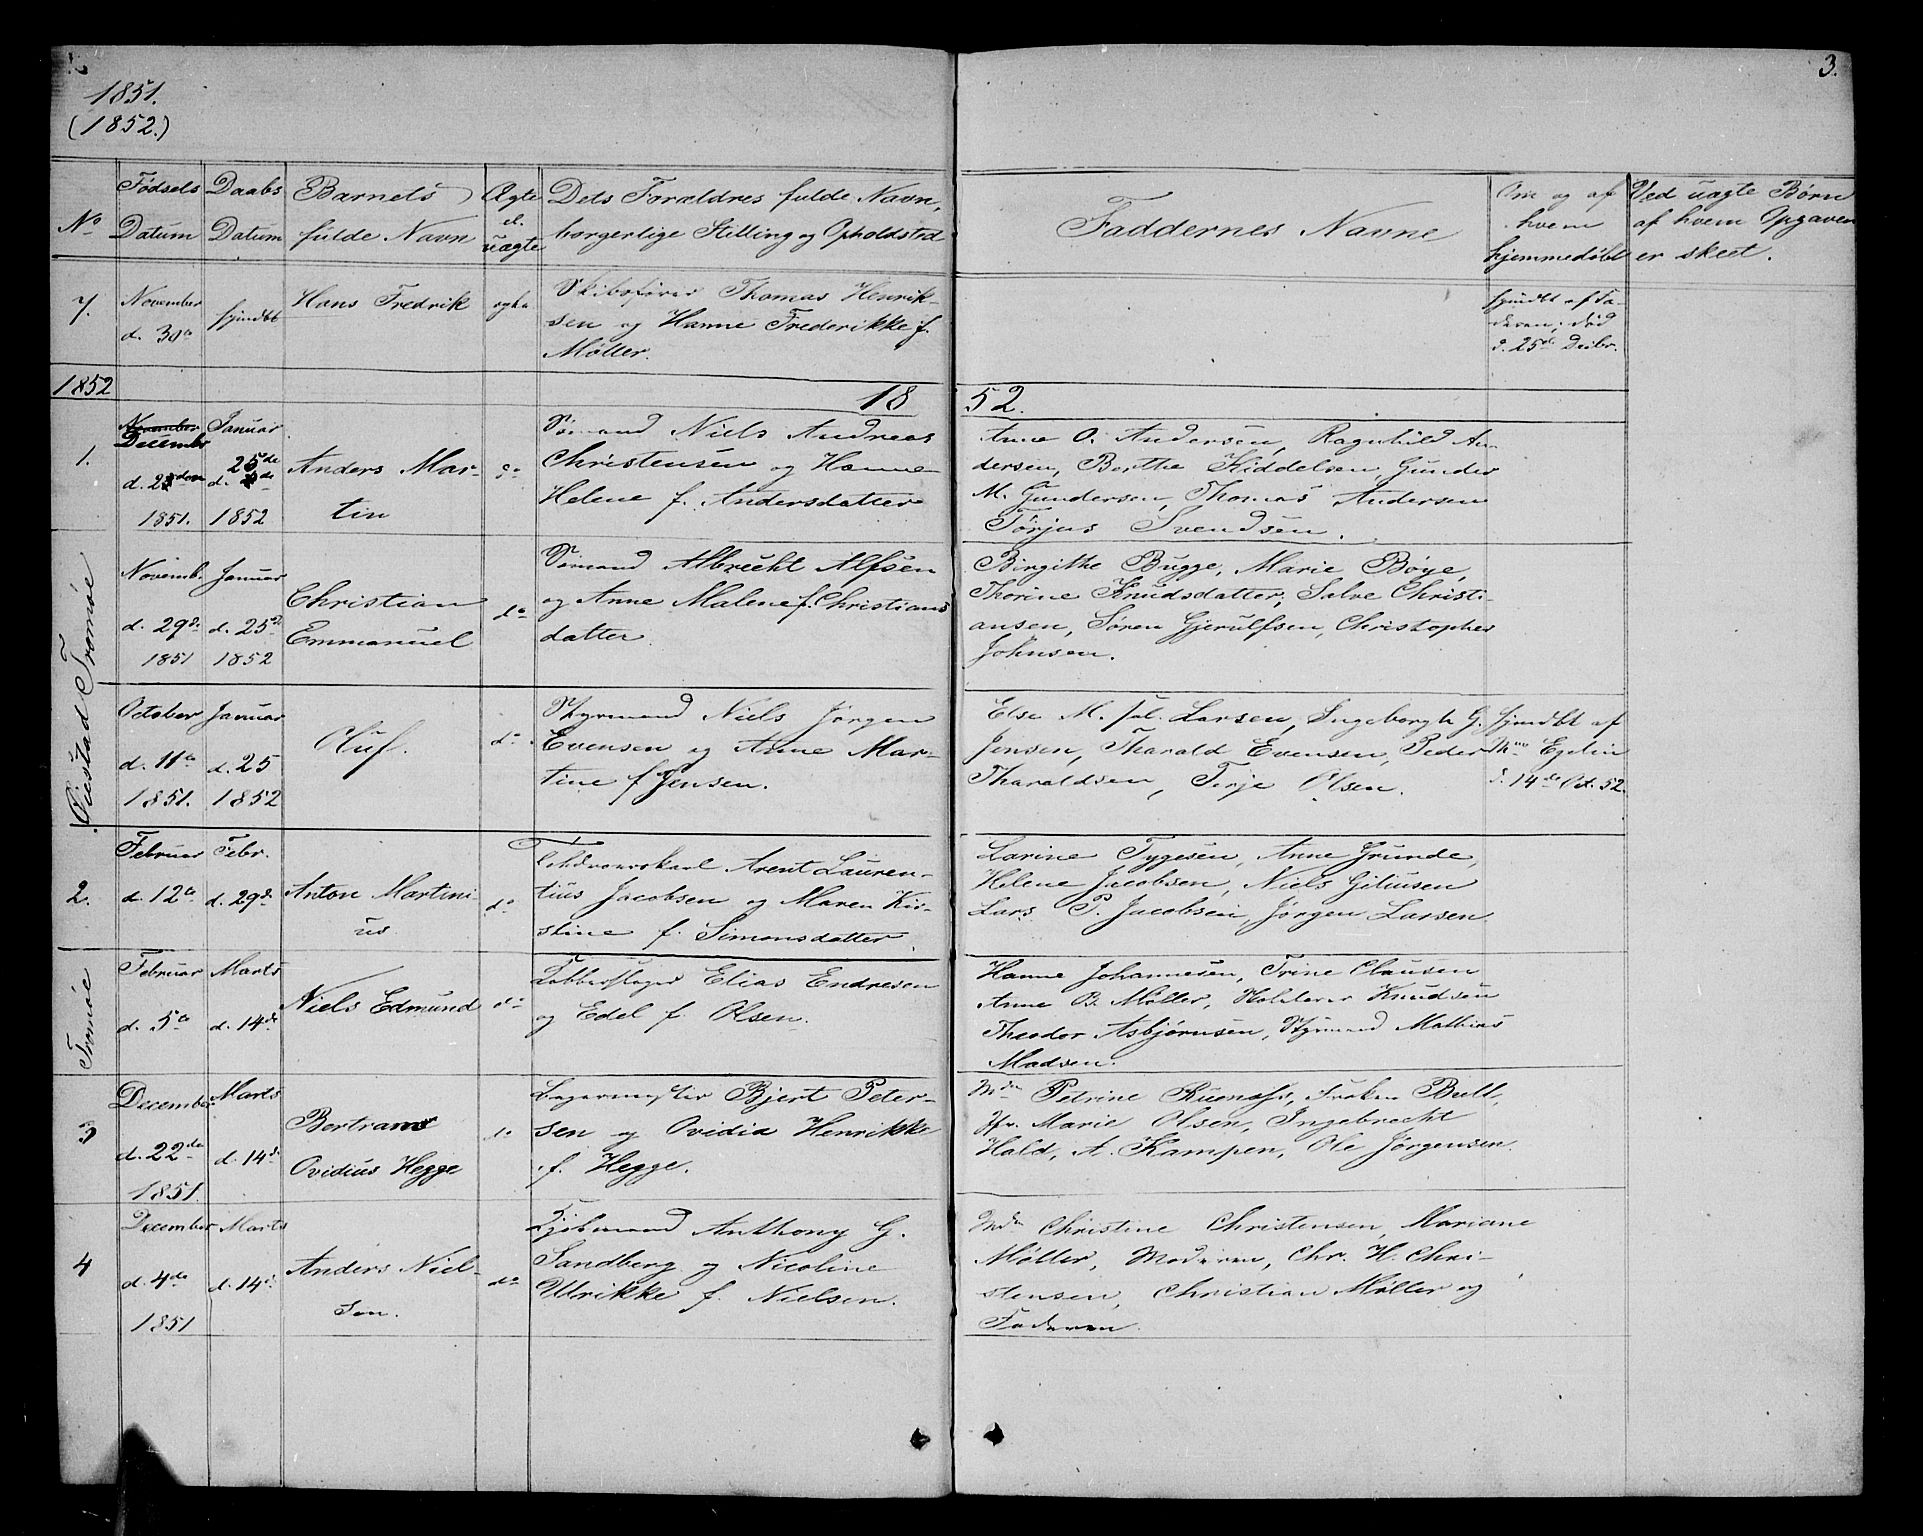 1851.
(1852.)
3.
No
Fødsels Datum
Daabs Datum
Barnets fulde Navn
Ægte el. uægte
Dets Forældres fulde Navn, borgerlige Stilling og Opholdsted
Faddernes Navne
Om og af hvem hjemmedøbt
Ved uægte Børn af hvem Opgaven er skeet.
7.
November d. 30te
hjmdbt
Hans Fredrik
ægte
Skibsfører Thomas Henrik-
sen og Hanne Frederikke f.
Møller.
hjmdbt af Fa-
deren; død
d. 25de Decbr.
1852
1852.
1.
November
December
d. 2
1851.
Januar
d. 25de
1852
Anders Mar-
tin
do
Sømand Niels Andreas
Christensen og Hanne
Helene f. Andersdatter
Anne O. Andersen, Ragnhild An-
dersen, Berthe Kiddelsen, Gunder
M. Gundersen, Thomas Andersen
Tørjus Svendsen.
Øiestad Tromøe
Novemb.
d. 29de
1851
Januar
d. 25de
1852
Christian
Emmanuel
do
Sømand Albrecht Alfsen
og Anne Malene f. Christians
datter.
Birgithe Bugge, Marie Bøye,
Thorine Knudsdatter, Salve Christi-
ansen, Søren Gjerulfsen, Christopher
Johnsen.
October
d. 11te
1851.
Januar
d. 25
1852
Oluf.
do
Styrmand Niels Jørgen
Evensen og Anne Mar-
tine f. Jensen.
Else M. Larsen, Ingeborgh G.
Jensen, Tharald Evensen, Peder
Tharaldsen, Terje Olsen.
hjmdbt af
Egelie
d. 14de Oct. 52.
2.
Februar
d. 12te
Febr.
d. 29de
Anton Martini
us
do
Arent Lauren-
tius Jacobsen og Maren Kir-
stine f. Simonsdatter.
Larine Tygesen, Anne Grunde,
Helene Jacobsen, Niels Giliusen
Lars P. Jacobsen, Jørgen Larsen
Tromøe
Februar
d. 5te
Marts
d. 14de
Niels Edmund
do
Kobberslager Elias Endresen
og Edel f. Olsen.
Hanne Johannesen, Trine Clausen
Anne B. Møller, Knudsen
Theodor Asbjørnsen, Styrmand Mathias
Madsen.
3
December
d. 22de
1851.
Marts
d. 14de
Bertram
Ovidius Hegge
do
Bjert Peter-
sen og Ovidia Henrikke
f. Hegge.
Mdm Petrine, Frøken Bull,
Jfr. Marie Olsen, Ingebrecht
Hald, A. Kampen, Ole Jørgensen.
4
December
d. 4de
1851
Marts
d. 14de
Anders Niel-
sen.
do
Kjøbmand Anthony G.
Sandberg og Nicoline
Ulrikke f. Nielsen.
Mdm Christine Christensen, Mariane
Møller, Moderen, Chr. H. Chri-
stensen, Christian Møller og
Faderen.